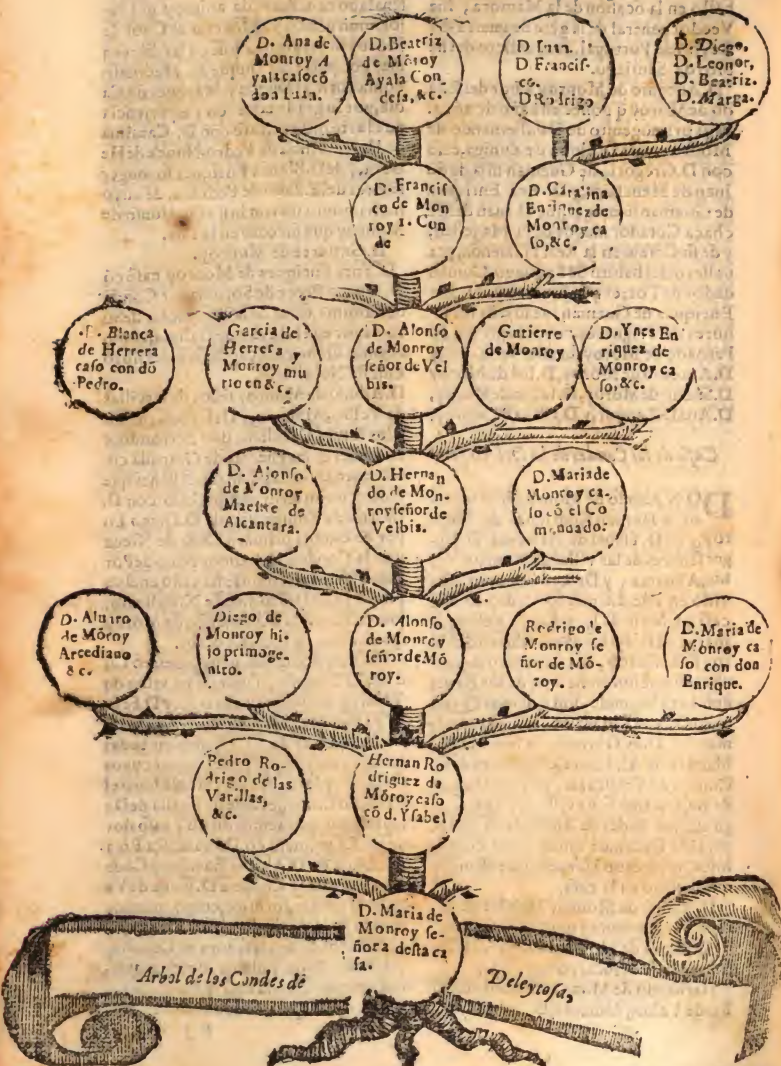 D. Ana de
Monroy A
yala casocō
don Iuan.
D. Beatriz
de Mōroy
Ayala Con
desa, &c.
D Iuan.
D Francis-
co.
D Rodrigo
D. Diego,
D. Leonor,
D. Beatriz.
D. Marga.
D. Francis
co de Mon
roy 1. Con
de
D. Catalina
Enriquez de
Monroy ca
so, &c.
D. Blanca
de Herrera
caso con dō
Pedro.
Garcia de
Herrera y
Monroy mu
rio en &c.
D. Alonso
de Monroy
señor de Vel
bis.
Gutierre
de Monroy
D. Ynes En
riquez de
Monroy ca
so, &c.
D. Alonso
de Monroy
Maestre de
Alcantara.
D. Hernan
do de Mon-
roy señor de
Velbis.
D. Maria de
Monroy ca-
so cō el Co
mendador
D. Aluaro
de Mōroy
Arcediano
&c.
Diego de
Monroy hi-
jo primoge-
nito.
D. Alonso
de Monroy
señor de Mō
roy.
Rodrigo de
Monroy se
ñor de Mō-
roy.
D. Maria de
Monroy ca
so con don
Enrique.
Pedro Ro-
drigo de las
Varillas,
&c.
Hernan Ro
driguez de
Mōroy caso
cō d. Ysabel
D. Maria de
Monroy se-
ñora desta ca
sa.
Arbol de los Condes de
Deleytosa,